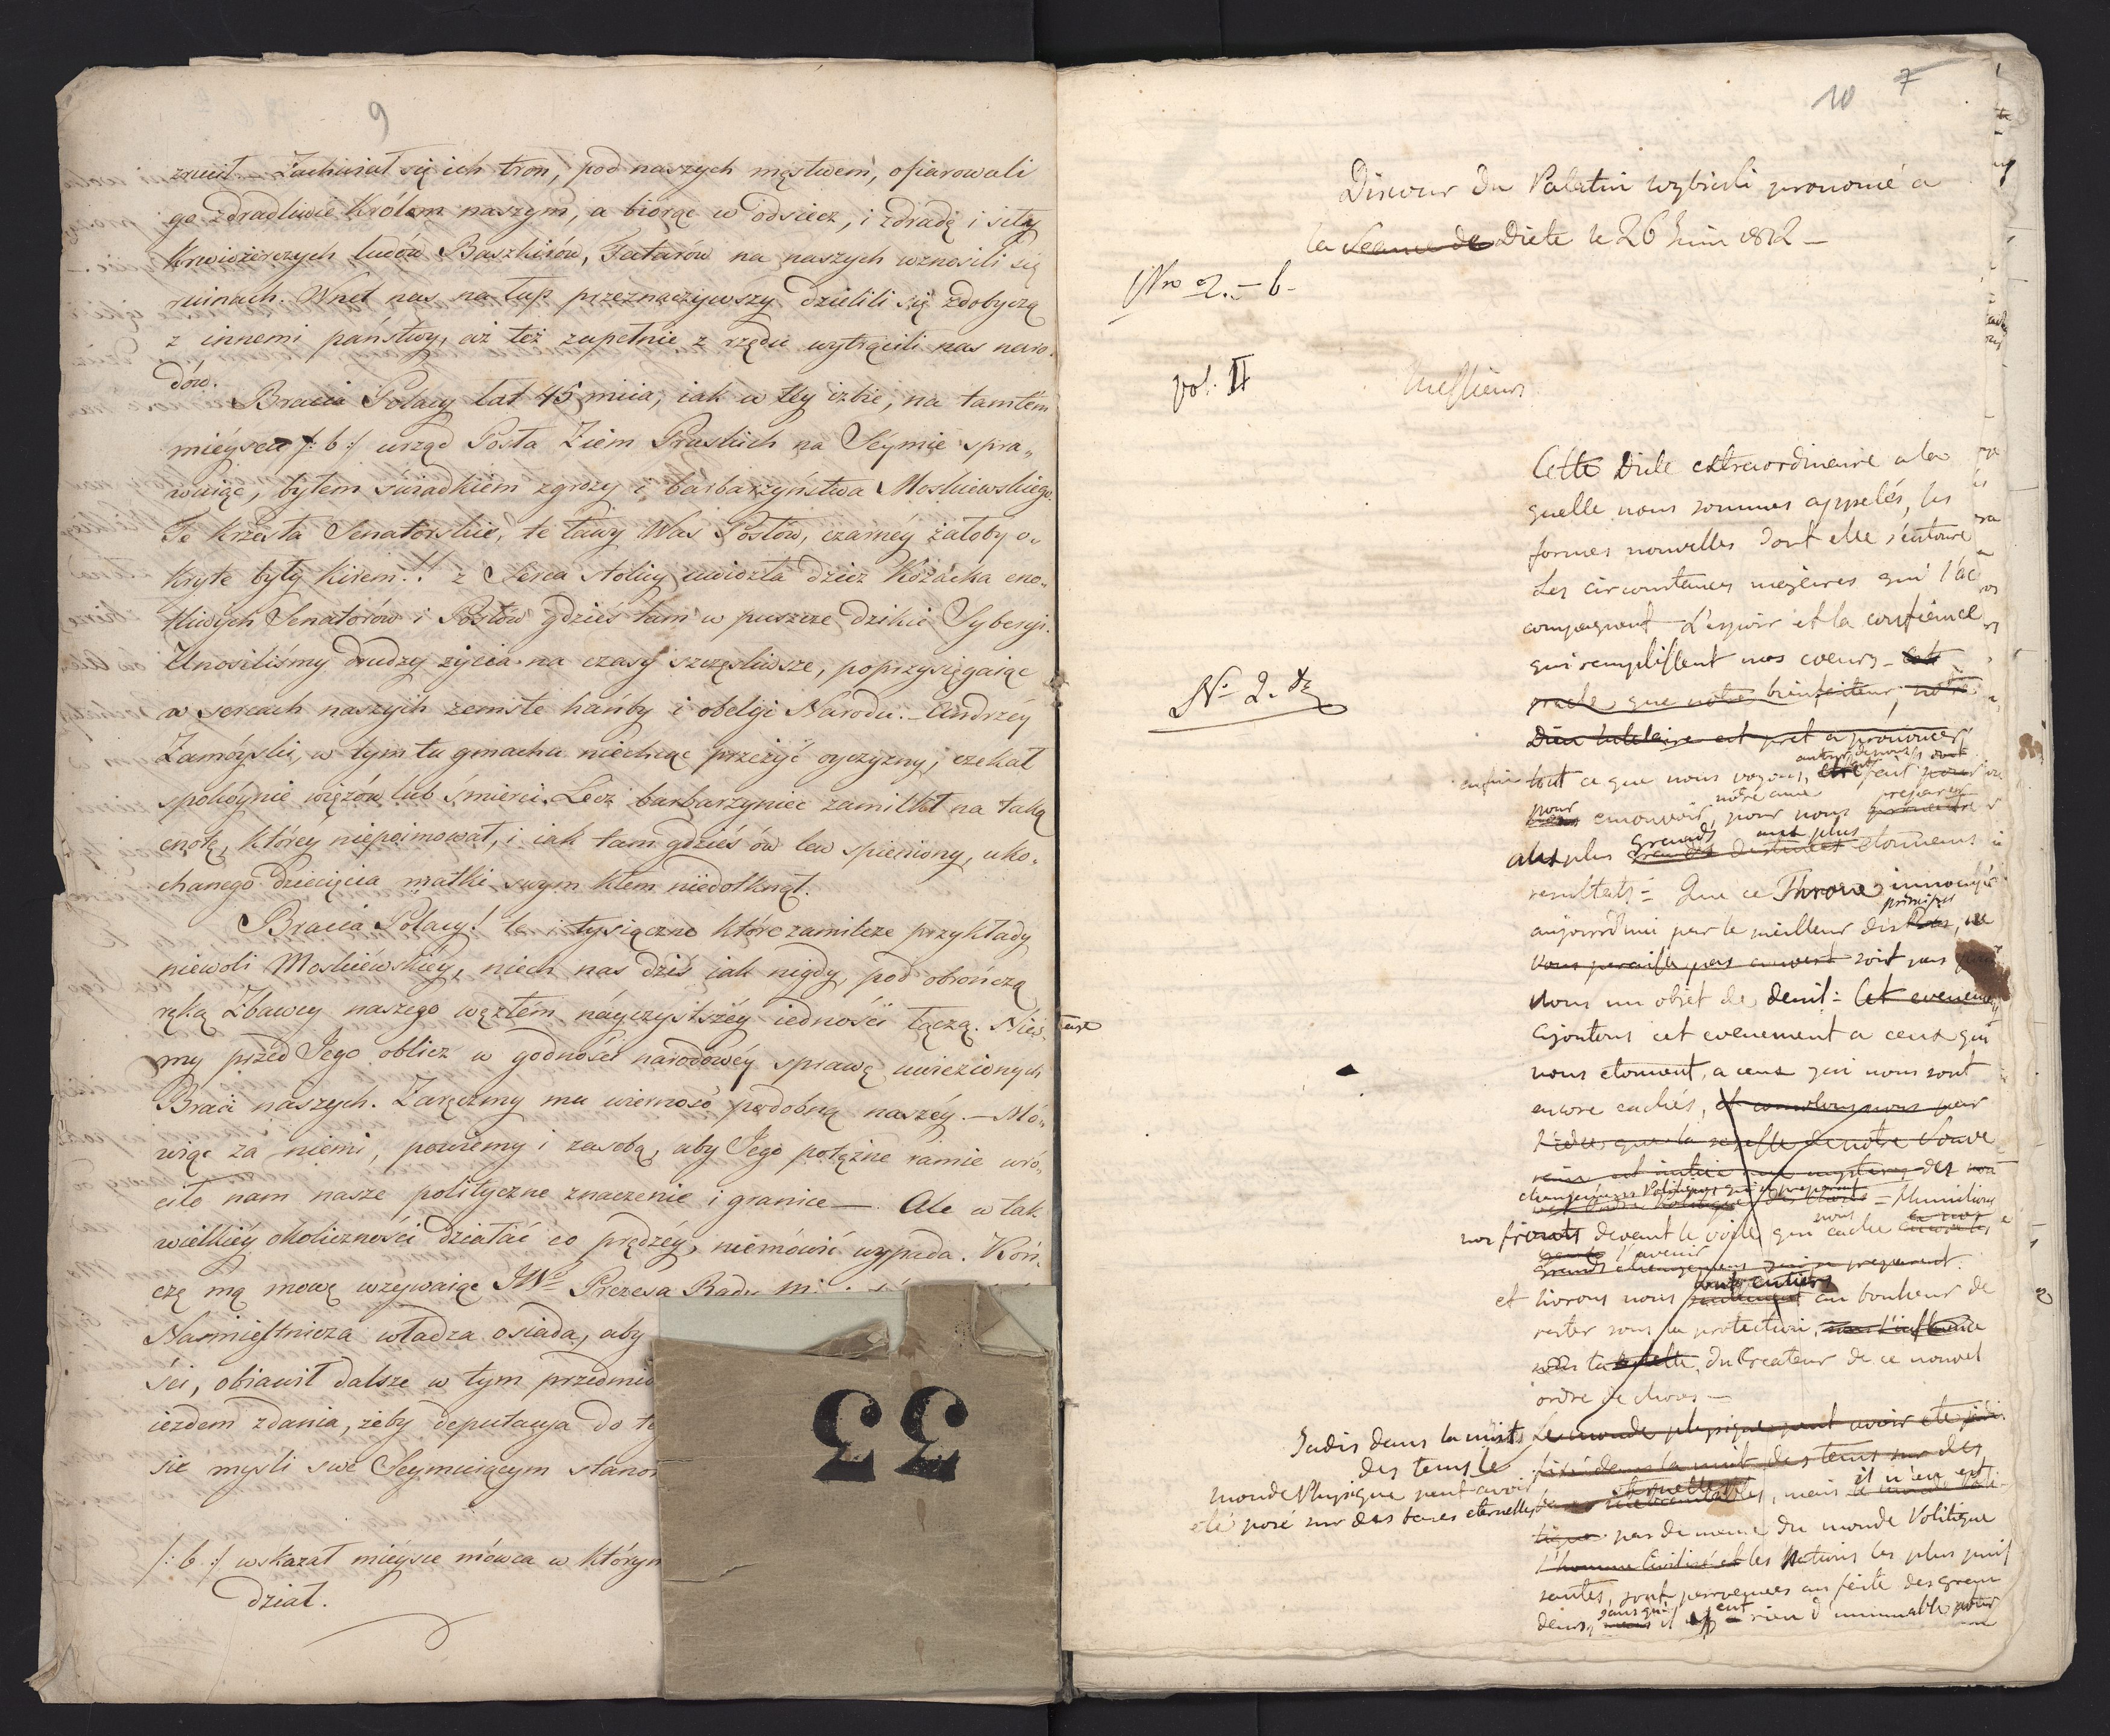 9
zrucił Zachwiał się ich tron, pod naszych męstwem, ofiarowali
go zdradliwie Królom naszym, a biorąc w odsiecz, i zdradę i siły
krwiożerczych ludów Baszkirów, Tatarów na naszych wznosili się
ruinach. Wnet nas na łup przeznaczywszy dzielili się zdobyczą
z innemi państwy, aż też zupełnie z rzędu wytrącili nas naro-
dów.
Bracia Polacy lat 45 miia, iak w tey izbie, na tamtem
mieyscu /: b :/ urząd Posła Ziem Pruskich na Seymie spra„
wuiąc, byłem świadkiem zgrozy i barbarzyństwa Moskiewskiego.
Te krzesła Senatorskie, te ławy Was Posłów, czarnéy żałoby o„
kryte były kirem!! z Serca stolicy uwiozła dzicz Kozacka cno„
tliwych Senatorów i Posłów gdzieś tam w puszcze dzikie Syberyi.
Unosiliśmy drudzy życia na czasy szczęśliwsze, poprzysięgaiąc
w sercach naszych zemstę hańby i obelgi Narodu. — Andrzéy
Zamóyski, w tym tu gmachu niechcąc przeżyć oyczyzny, czekał
spokoynie więzów lub śmierci. Lecz barbarzyniec zamilkł na taką
cnotę, którey niepoimował, i iak tam gdzieś ów lew spieniony, uko„
chanego dziecięcia matki swym kłem niedotknął.
Bracia Polacy! te i tysiączne które zamilczę przykłady
niewoli Moskiewskiey, niech nas dziś iak nigdy, pod obrończą
ręką Zbawcy naszego węzłem náyczystszéy iedności łączą. Nieś„
my przed Jego oblicz w godności narodowéy sprawę uwiezionych
Braci naszych. Zaręczmy mu wierność podobną naszéy. — Mó„
wiąc za niemi, powiemy i zasobą, aby Jego potężne ramie wró„
ciło nam nasze polityczne znaczenie i granice — Ale w tak
wielkiéy okoliczności działać co prędzéy, niemówić wypada. Koń„
czę mą mowę wzywaiąc JW Prezesa Rady
Namiestnicza władza osiada, aby
ści, obiawił dalsze w tym przedmio
iezdem zdania, żeby deputacya do te
sie myśli swe Seymuiącym stanom
/: b :/ wskazał mieysce mówca w którym
dział.
33
10 7
Discour du Palatin Wybicki prononcé a
la Seance de Diete le 26 Juin 1812 —
Nro 2. — b-
vol. II
Messieurs
Nº 2.
Cette Diete extraordinaire a la
quelle nous sommes appelés, les
formes nouvelles dont elle s'entoure
Les circonstances majeures qui l'ac
compagnent L'espoir et la confiance
qui remplissent nos coeurs — 
oracle que notre bienfaiteur, notre
Dieu tutelaire est pret a prononcer
enfin tout ce que nous voyons, autour de nous est fait pour
pour emouvoir notre ame, pour nous preparer
aux plus Grands aux plus etonnans
resultats = Que ce Throne, innocupé
aujourd'hui par le meilleur des Rois, princes ne
vous paraisse pas couvert soit pas pour
nous un objet de deuil = Cet evenement
ajoutons cet evenement a ceux qui
nous etonnent, a ceux qui nous sont
encore cachés, et consolons nous par
l'idée que la sagesse de notre Souve
rain est initiée aux mysteres des
changemens Politiques qui se preparent = Humilions
nos fronts devant le voile qui nous cache
l'avenir
grands changemens qui se preparent.
et livrons nous tout entiers au bonheur de
rester sous la protection, sous l'influence
sous la tutelle, du Createur de ce nouvel
ordre de choses —
Jadis dans la nuit
des tems le
monde Physique peut avoir
été posé sur des bases eternelles
Le monde physique peut avoir eté jadis
fixé dans la nuit des tems sur des
bases eternelles, mais il n'en est
pas de meme du monde Politique
L'homme Civilisé et les Nations les plus puis
santes, sont parvenues au faite des gran
deurs, sans qu'il y eut rien d'immuable pour